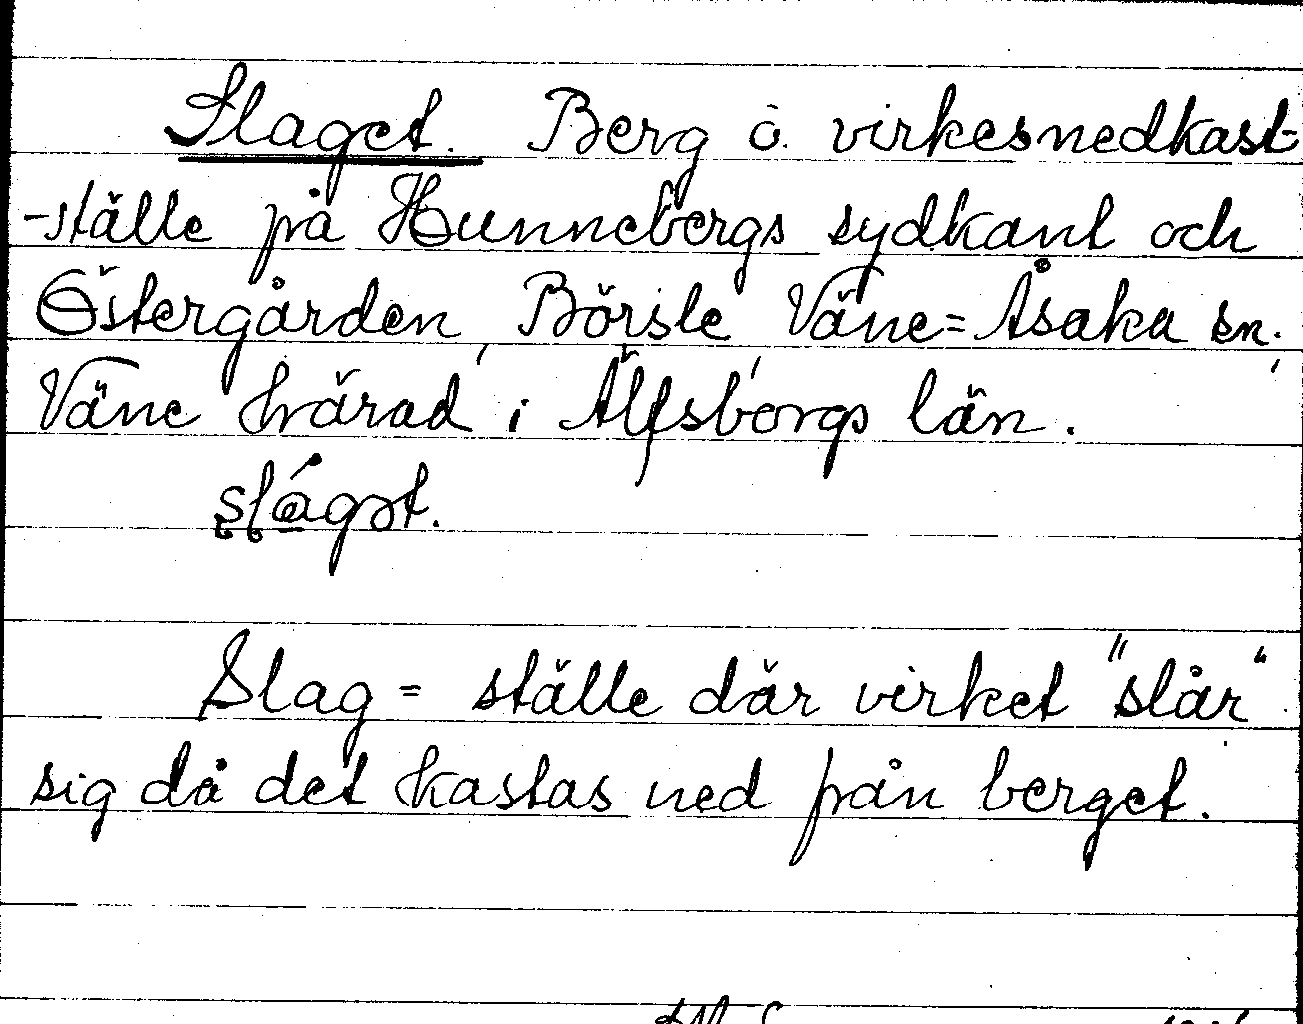 Slaget. Berg o. virkesnedkast-
-ställe på Hunnebergs sydkant och
Östergården, Börsle, Väne=Åsaka sn.,
Väne härad i Älfsborgs län.
slágət.
Slag = ställe där virket "slår"
sig då det kastas ned från berget.